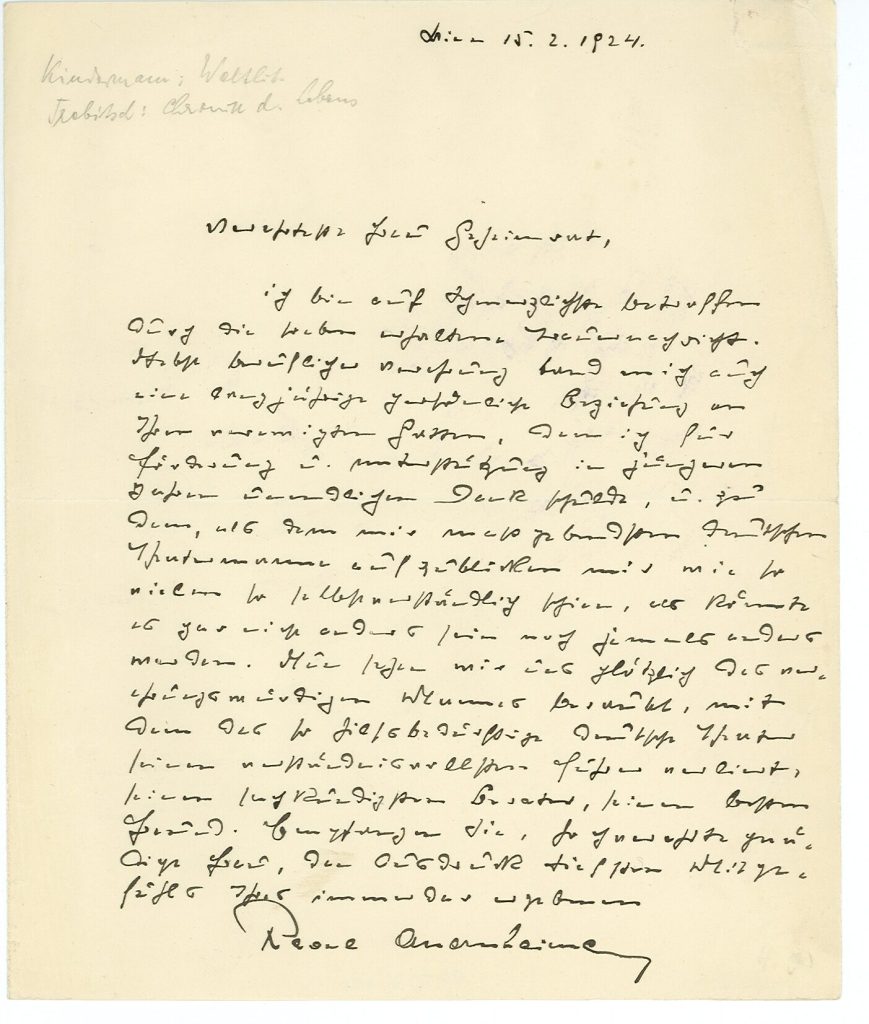 Wien 15. 2. 1924.
Kindermann: Weltlit.
Trebitsch: Chronik d. Lebens
Verehrteste Frau Geheimrat,
ich bin auf schmerzlichste betroffen
durch die soeben erhaltene Trauernachricht.
Nebst beruflicher Verehrung band mich auch
eine langjährige persönliche Beziehung an
Ihren verewigten Gatten, dem ich für
Förderung u. Unterstützung in jüngeren
Jahren unendlichen Dank schulde, u. zu
dem, als dem mir massgebendsten deutschen
Theatermanne aufzublicken mir wie so
vielen so selbstverständlich schien, als könnte
es gar nicht anders sein noch jemals anders
werden. Nun sehen wir uns plötzlich des ver-
ehrungswürdigen Mannes beraubt, mit
dem das so hilfsbedürftige deutsche Theater
seinen verständnisvollsten Führer verliert,
seinen sachkundigsten Berater, seinen besten
Freund. Empfangen Sie, hochverehrte gnä-
dige Frau, den Ausdruck tiefsten Mitge-
fühls Ihres immerdar ergebenen
Raoul Auernheimer